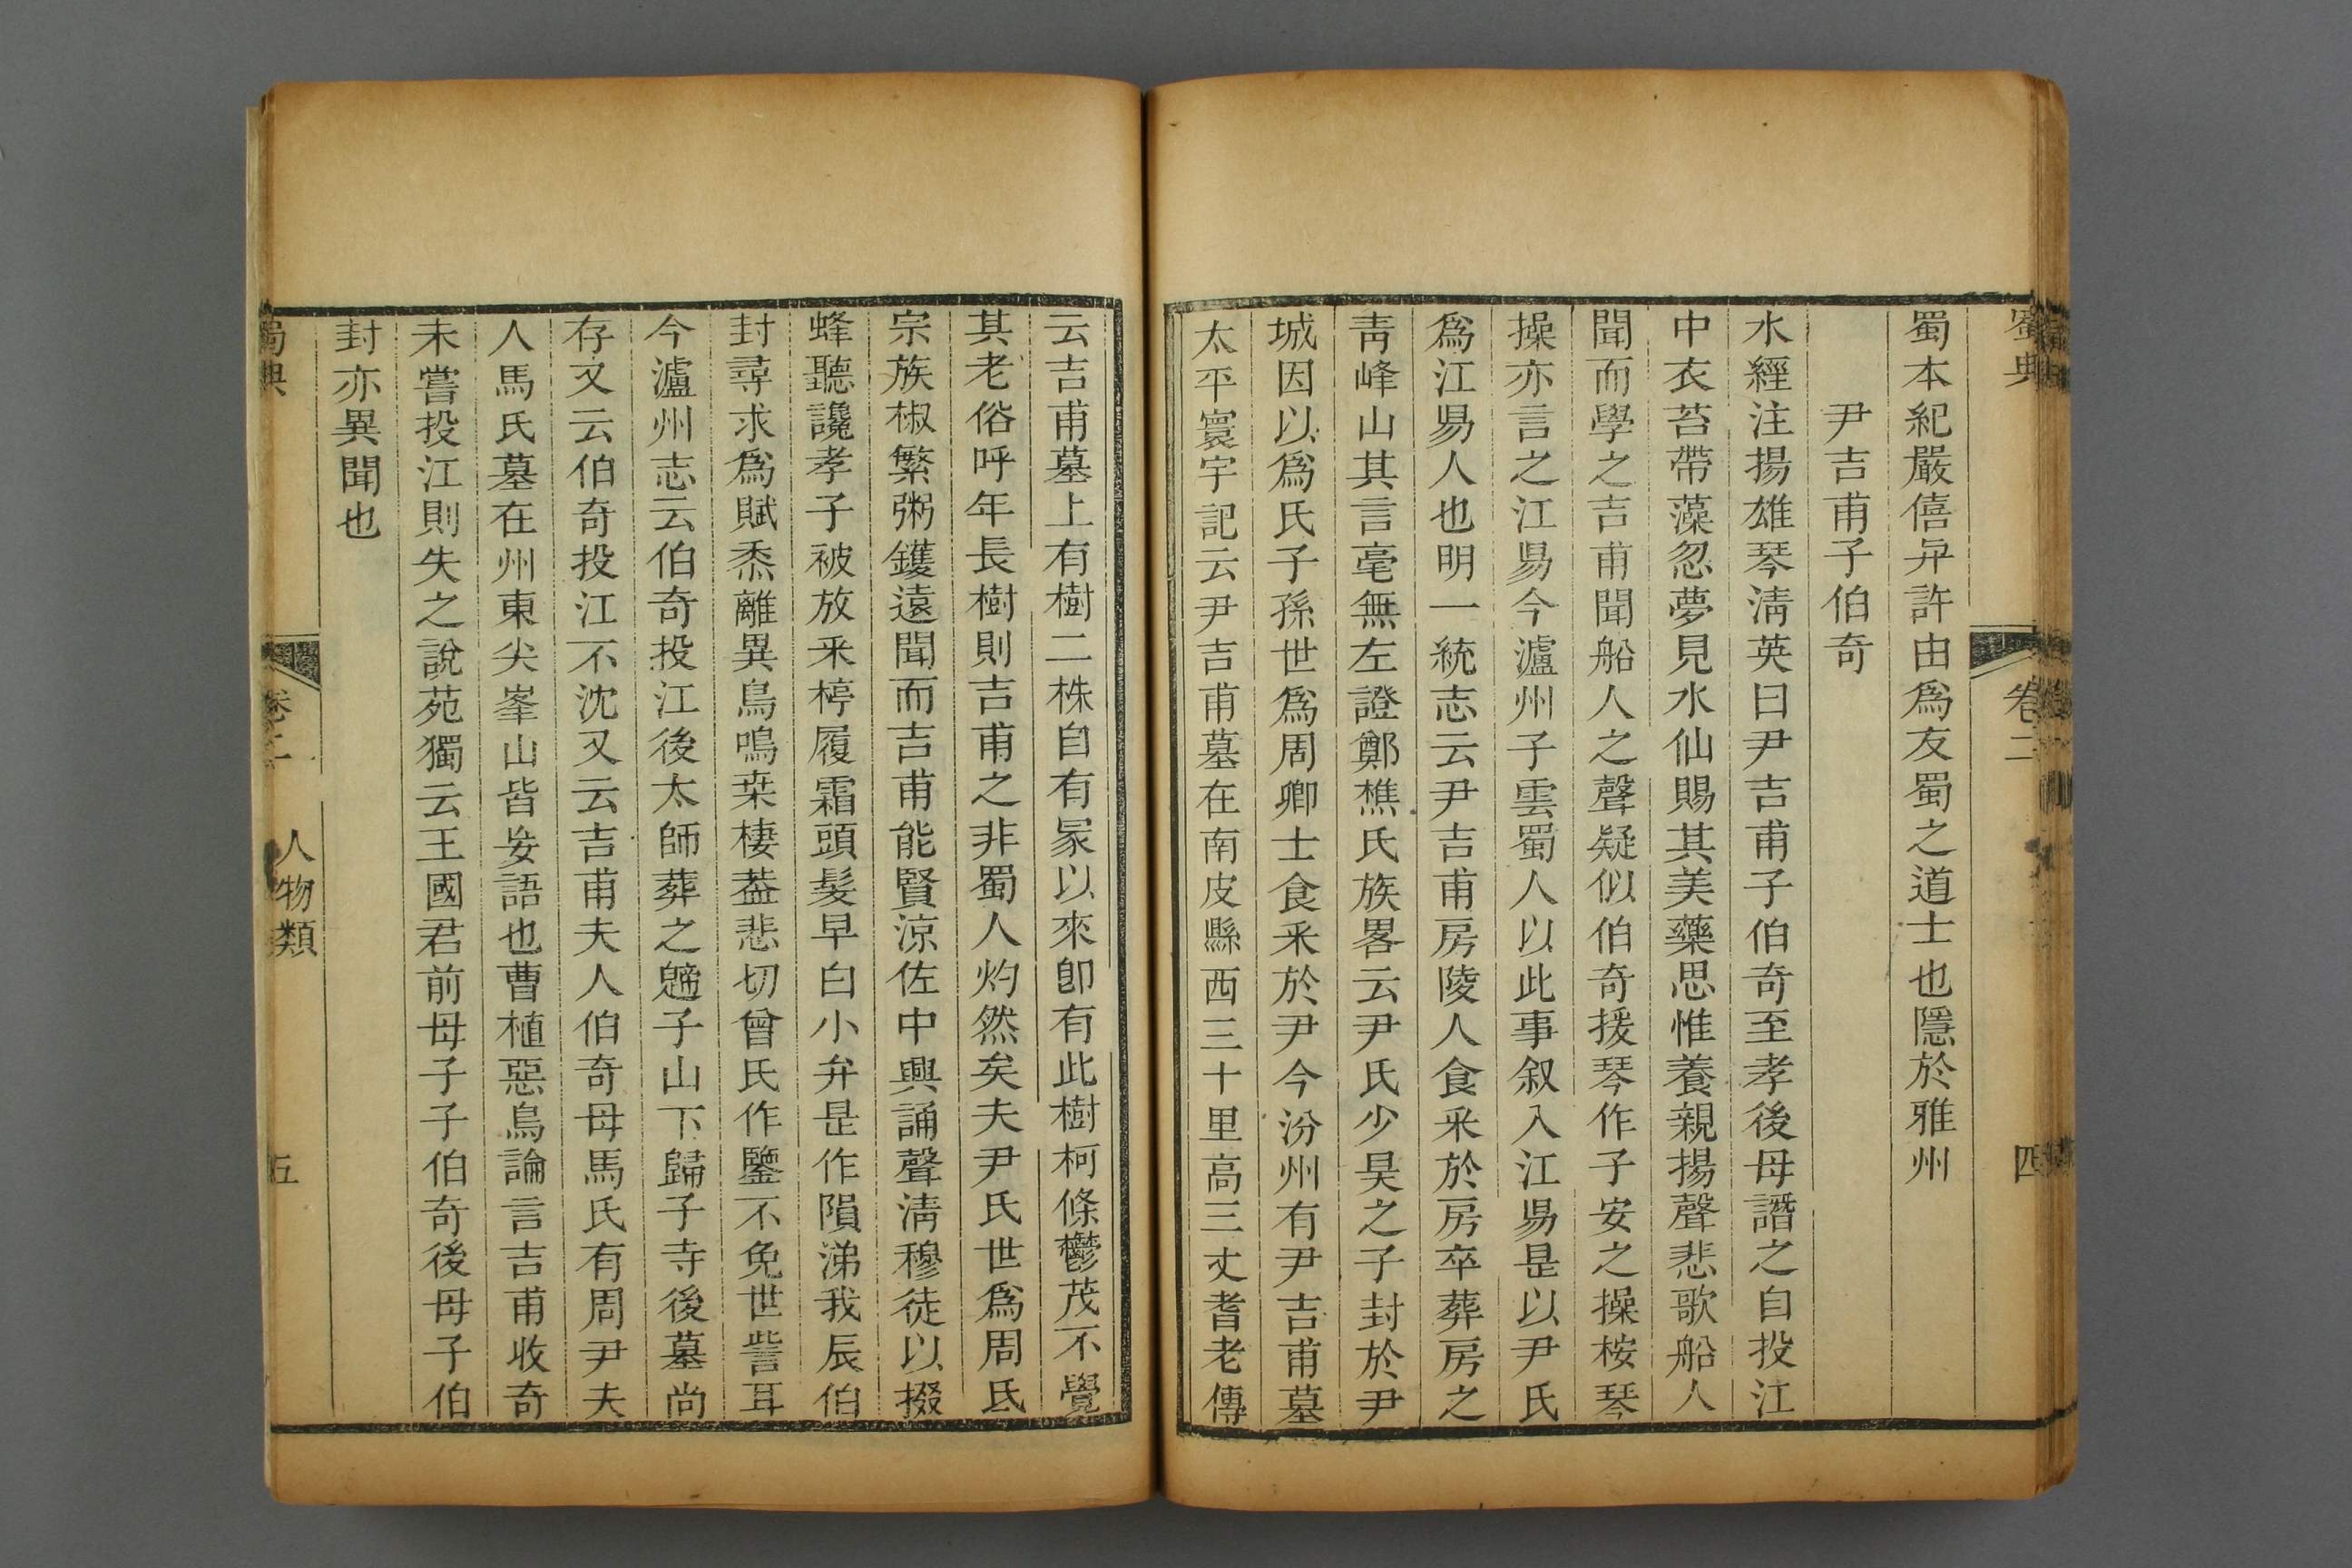 蜀典
卷二
四
蜀本紀嚴僖弁許由爲友蜀之道士也隱於雅州
尹吉甫子伯奇
水經注揚雄琴淸英曰尹吉甫子伯奇至孝後母譖之自投江
中衣苔帶藻忽夢見水仙賜其美藥思惟養親揚聲悲歌船人
聞而學之吉甫聞船人之聲疑似伯奇援琴作子安之操桉琴
操亦言之江昜今瀘州子雲蜀人以此事叙入江昜是以尹氏
爲江昜人也明一統志云尹吉甫房陵人食釆於房卒葬房之
靑峰山其言毫無左證鄭樵氏族畧云尹氏少昊之子封於尹
城因以爲氏子孫世爲周卿士食釆於尹今汾州有尹吉甫墓
太平寰宇記云尹吉甫墓在南皮縣西三十里高三丈耆老傳
云吉甫墓上有樹二株自有冢以來卽有此樹柯條鬱茂不覺
其老俗呼年長樹則吉甫之非蜀人灼然矣夫尹氏世爲周氐
宗族椒繁粥鑊遠聞而吉甫能賢涼佐中興誦聲淸穆徒以掇
蜂聽讒孝子被放采楟履霜頭髮早白小弁是作隕涕我辰伯
封尋求爲賦黍離異鳥鳴桒棲葢悲切曾氏作鑒不免世訾耳
今瀘州志云伯奇投江後太師葬之䰡子山下歸子寺後墓尚
存又云伯奇投江不沈又云吉甫夫人伯奇母馬氏有周尹夫
人馬氏墓在州東尖峯山皆妄語也曹植惡鳥論言吉甫收奇
未嘗投江則失之說苑獨云王國君前母子子伯奇後母子伯
封亦異聞也
蜀典
卷二
人物類
五